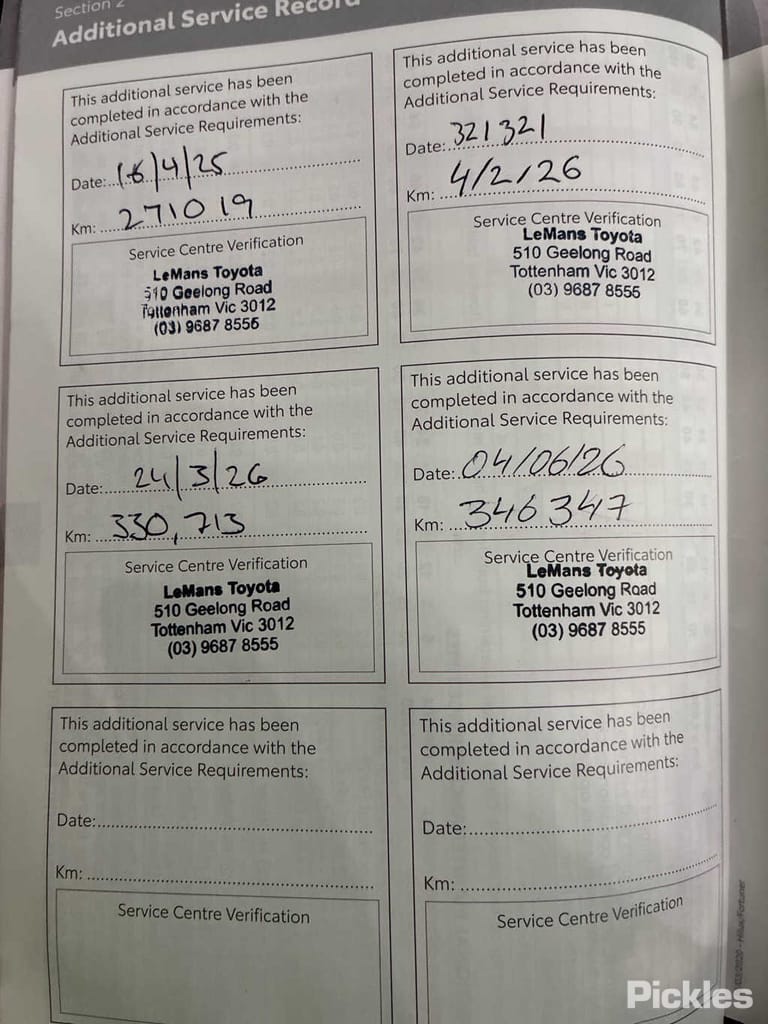 Section 2
Additional Service Record
This additional service has been
completed in accordance with the
Additional Service Requirements:
Date: 16/4/25
Km: 271019
Service Centre Verification
LeMans Toyota
510 Geelong Road
Tottenham Vic 3012
(03) 9687 8555
This additional service has been
completed in accordance with the
Additional Service Requirements:
Date: 321321
Km: 4/2/26
Service Centre Verification
LeMans Toyota
510 Geelong Road
Tottenham Vic 3012
(03) 9687 8555
This additional service has been
completed in accordance with the
Additional Service Requirements:
Date: 24/3/26
Km: 330,713
Service Centre Verification
LeMans Toyota
510 Geelong Road
Tottenham Vic 3012
(03) 9687 8555
This additional service has been
completed in accordance with the
Additional Service Requirements:
Date: 04/06/26
Km: 346347
Service Centre Verification
LeMans Toyota
510 Geelong Road
Tottenham Vic 3012
(03) 9687 8555
This additional service has been
completed in accordance with the
Additional Service Requirements:
Date:
Km:
Service Centre Verification
This additional service has been
completed in accordance with the
Additional Service Requirements:
Date:
Km:
Service Centre Verification
03/2020 - Hilux/Fortuner
Pickles